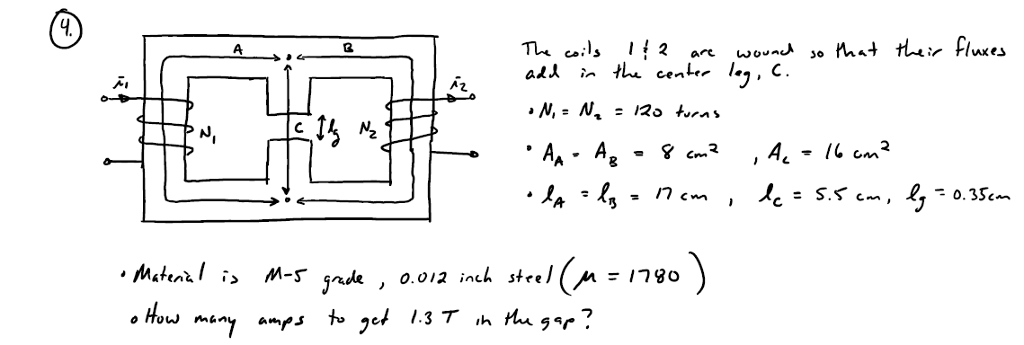 4.
A B
i₁ i₂
N₁ C lg N₂
The coils 1 & 2 are wound so that their fluxes
add in the center leg, C.
• N₁ = N₂ = 120 turns
• A_A = A_B = 8 cm² , A_c = 16 cm²
• l_A = l_B = 17 cm , l_c = 5.5 cm, l_g = 0.35cm
• Material is M-5 grade, 0.012 inch steel (μ = 1780)
• How many amps to get 1.3 T in the gap?